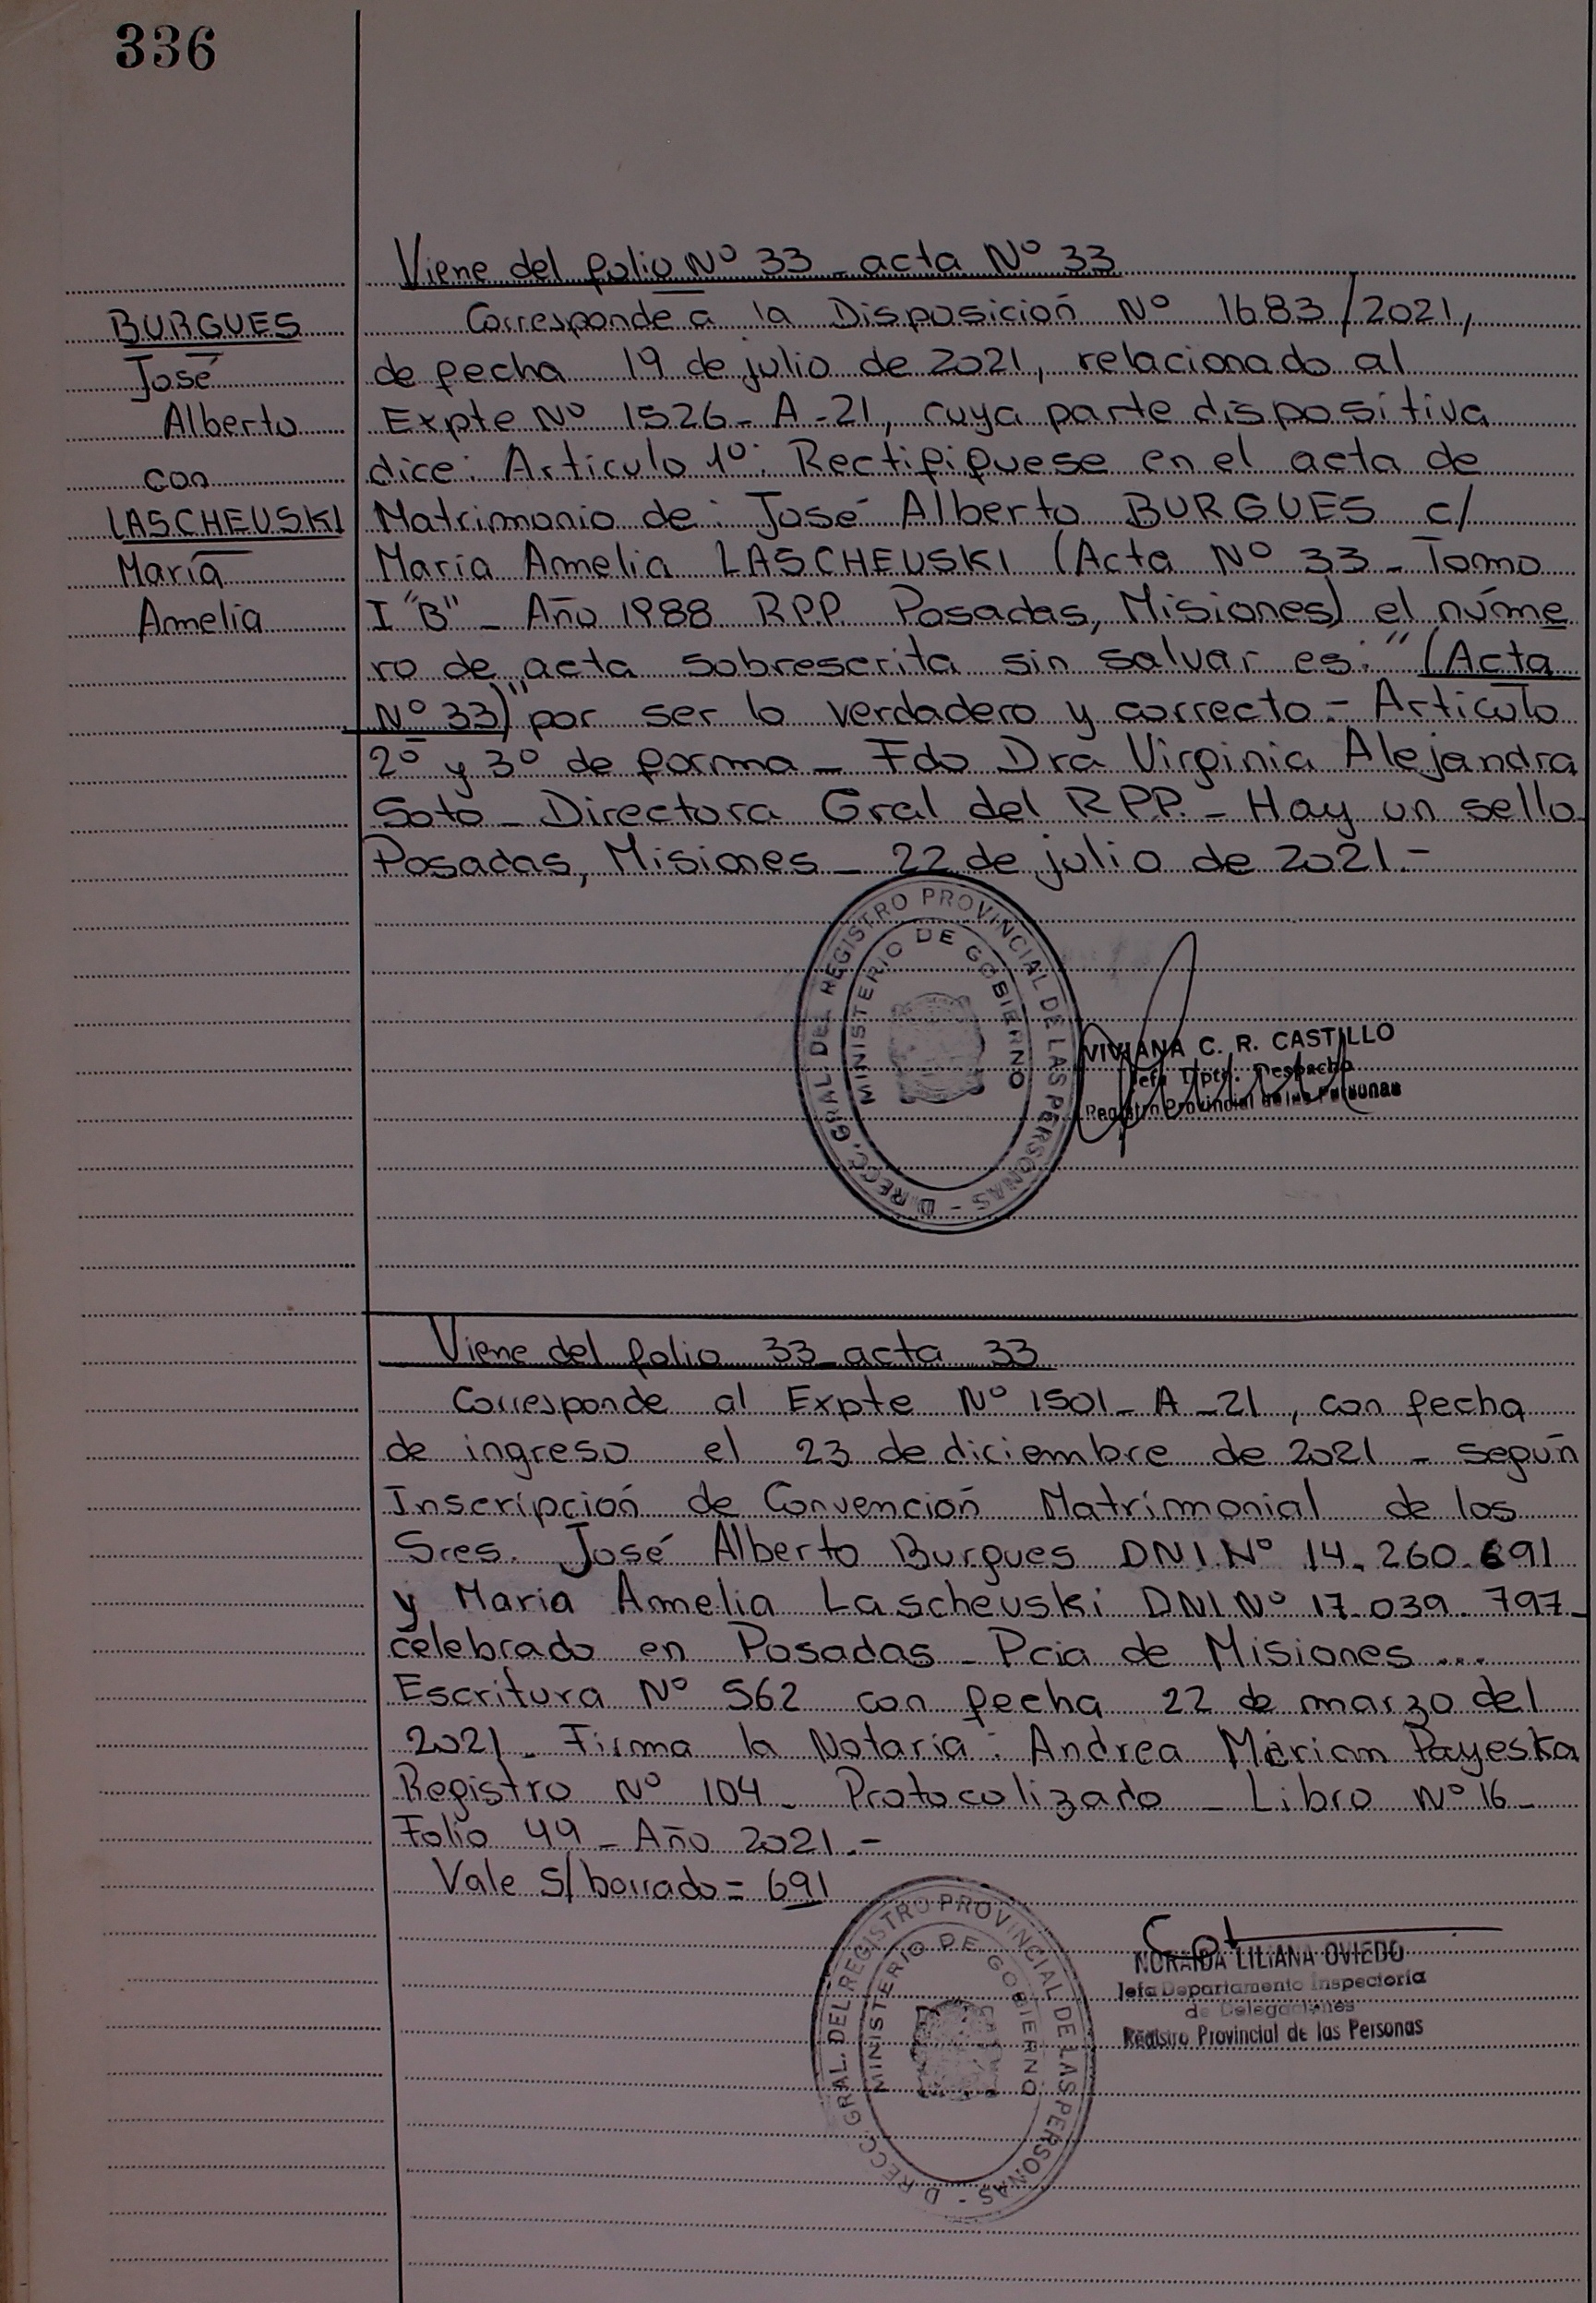 336
Viene del folio Nº 33 _ acta Nº 33
BURGUES
José
Alberto
con
LASCHEUSKI
María
Amelia
Corresponde a la Disposición Nº 1683/2021,
de fecha 19 de julio de 2021, relacionado al
Expte Nº 1526_ A _21, cuya parte dispositiva
dice: Artículo 1º: Rectifíquese en el acta de
Matrimonio de: José Alberto BURGUES c/
María Amelia LASCHEUSKI (Acta Nº 33 _ Tomo
I "B" _ Año 1988 R.P.P. Posadas, Misiones) el núme
ro de acta sobrescrita sin salvar es: "(Acta
Nº 33)" por ser lo verdadero y correcto.- Artículo
2º y 3º de forma _ Fdo Dra Virginia Alejandra
Soto _ Directora Gral del R.P.P. _ Hay un sello
Posadas, Misiones _ 22 de julio de 2021.-
DIRECC. GRAL. DEL REGISTRO PROVINCIAL DE LAS PERSONAS -
MINISTERIO DE GOBIERNO
VIVIANA C. R. CASTILLO
Jefa Dpto. Despacho
Registro Provincial de las Personas
Viene del folio 33 _ acta 33
Corresponde al Expte Nº 1501_ A _21, con fecha
de ingreso el 23 de diciembre de 2021 _ según
Inscripción de Convención Matrimonial de los
Sres. José Alberto Burgues DNI Nº 14.260.691
y María Amelia Lascheuski DNI Nº 17.039.797_
celebrado en Posadas _ Pcia de Misiones ...
Escritura Nº 562 con fecha 22 de marzo del
2021_ Firma la Notaria: Andrea Miriam Payeska
Registro Nº 104_ Protocolizado _ Libro Nº 16_
Folio 49 _ Año 2021.-
Vale S/borrado = 691
DIRECC. GRAL. DEL REGISTRO PROVINCIAL DE LAS PERSONAS -
MINISTERIO DE GOBIERNO
NORAIDA LILIANA OVIEDO
Jefa Departamento Inspectoría
de Delegaciones
Registro Provincial de las Personas